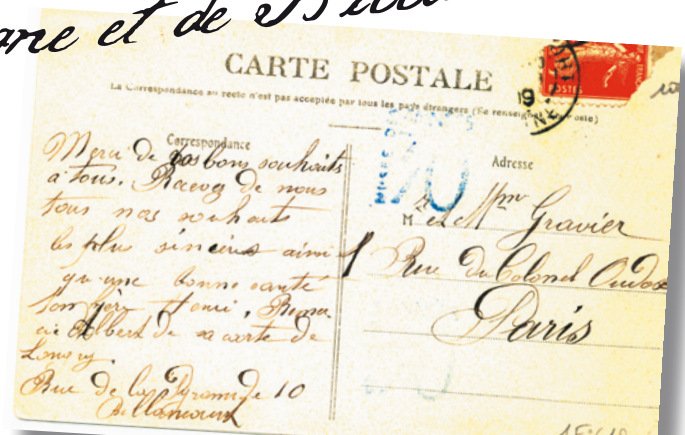 et de
CARTE POSTALE
La Correspondance au recto n'est pas acceptée par tous les pays étrangers (Se renseigner Poste)
Correspondance
Merci de vos bons souhaits
à tous. Recevez de nous
tous nos souhaits
les plus sincères ainsi
qu'une bonne santé
Henri. Remer
cie Albert de sa carte de
Rue de la Pyramide 10
Billancourt
Adresse
M et Mme Gravier
1 Rue Du Colonel Oudot
Paris
POSTE
19
NE